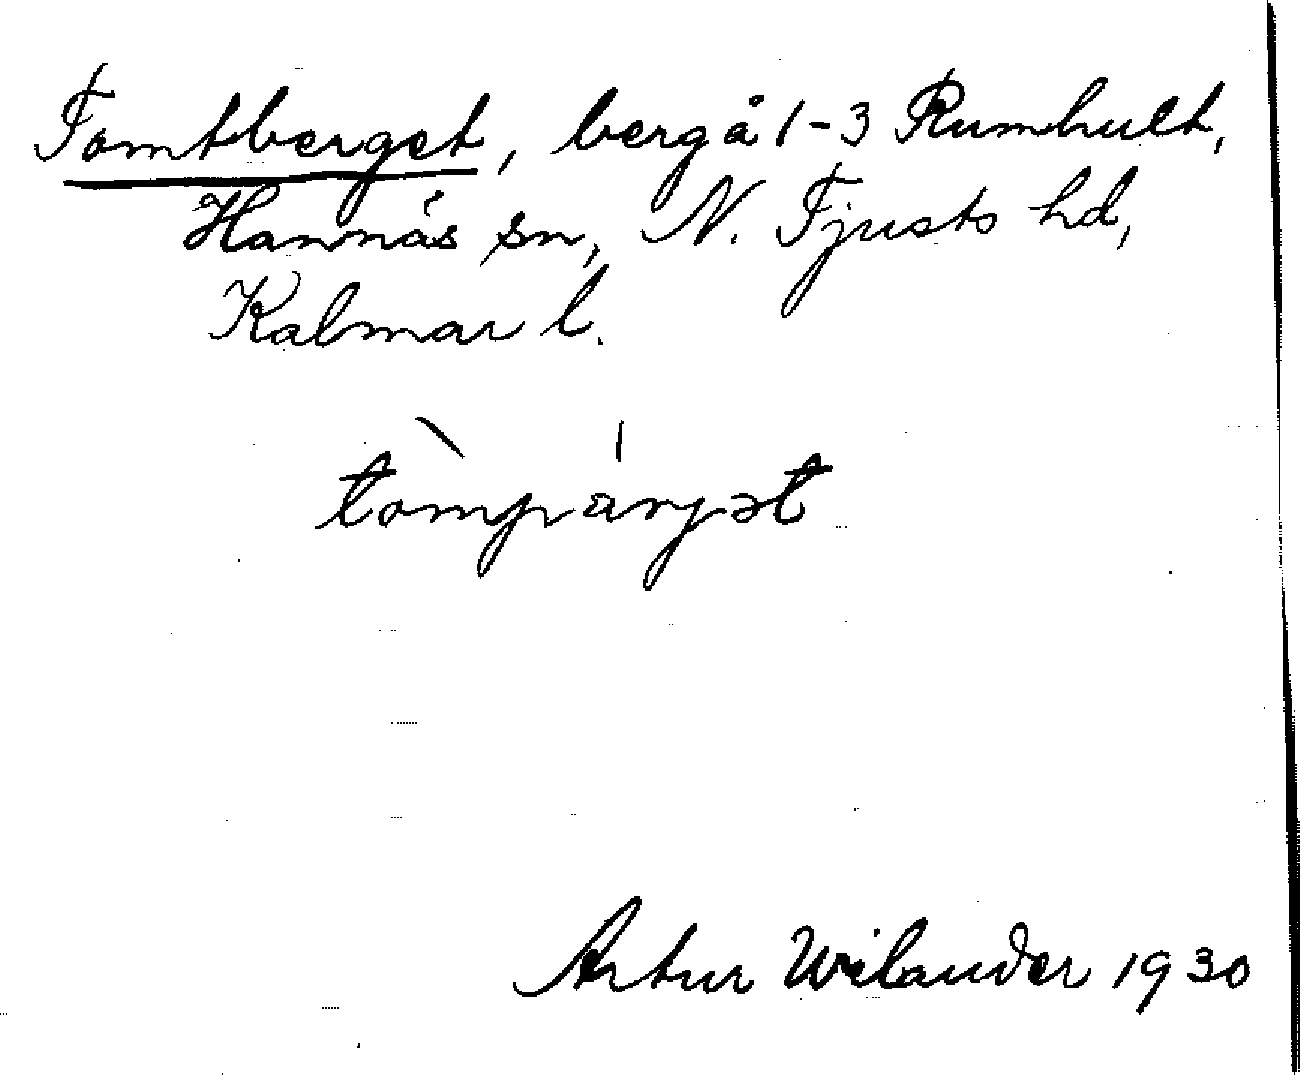 Tomtberget, berg å 1-3 Rumhult,
Hannäs sn, N. Tjusts hd,
Kalmar l.
Artur Wilander 1930